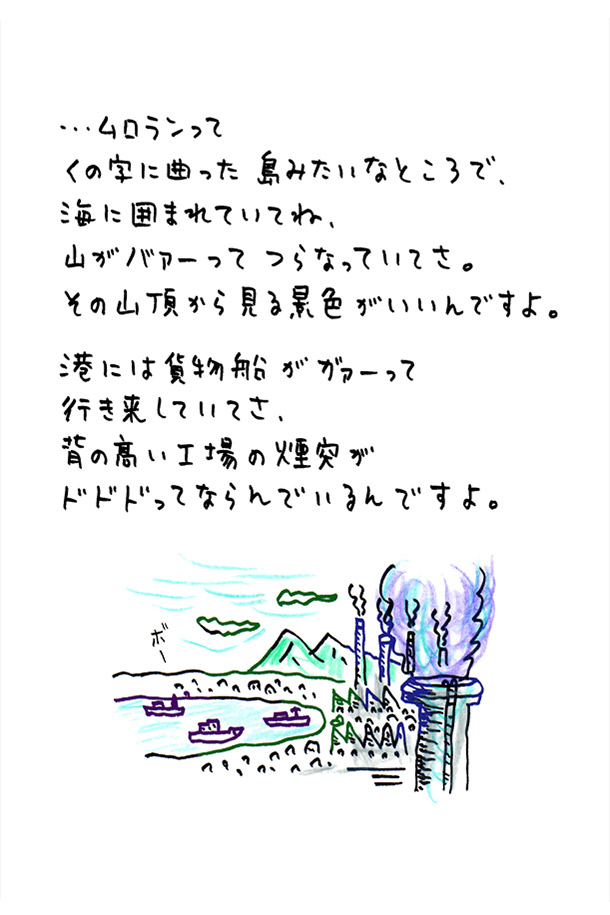 …ムロランって
くの字に曲った 島みたいなところで、
海に囲まれていてね、
山がバァーって つらなっていてさ。
その山頂から見る景色がいいんですよ。
港には貨物船が ガァーって
行き来していてさ、
背の高い工場の煙突が
ドドドってならんでいるんですよ。
ボー